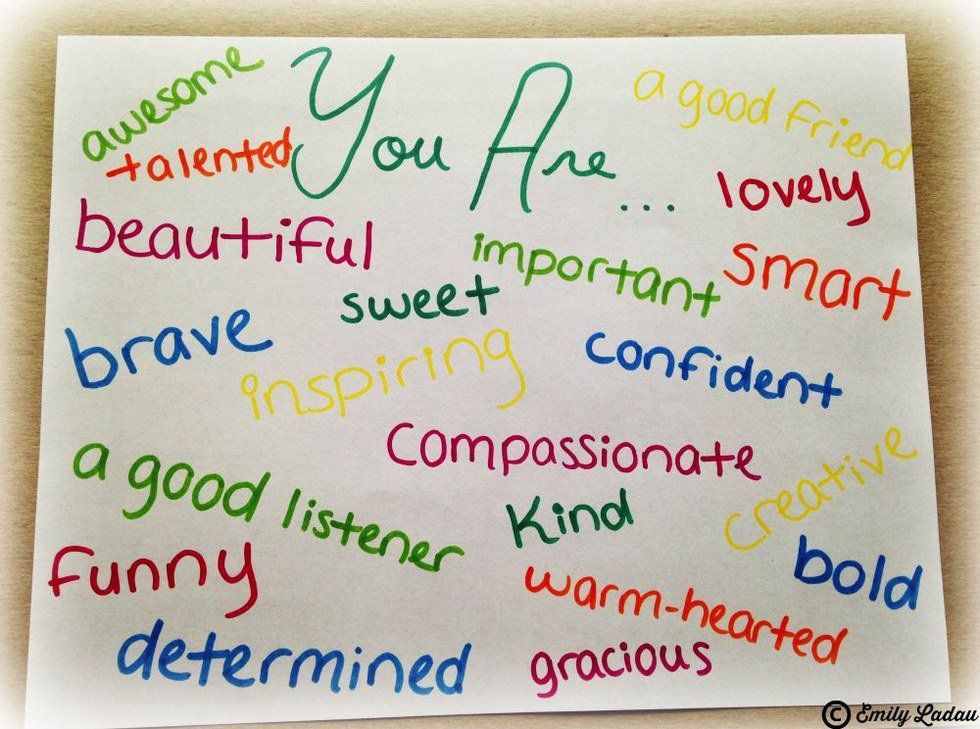 You Are...
awesome
a good friend
talented
lovely
beautiful
important
smart
sweet
brave
inspiring
confident
compassionate
creative
a good listener
Kind
bold
funny
warm-hearted
determined
gracious
© Emily Ladau